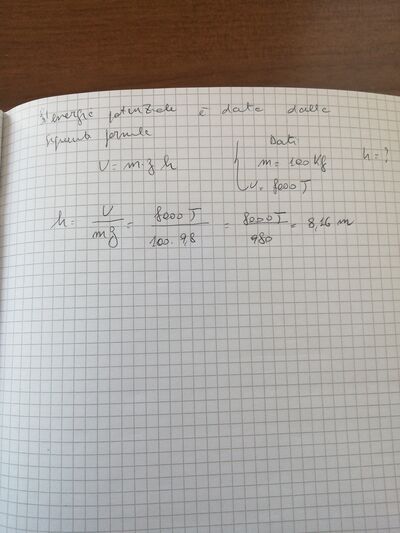 L'energia potenziale è data dalla
seguente formula
U = m·g·h
Dati
m = 100 Kg
U = 8000 J
h = ?
h = U/mg = 8000 J/100·9,8 = 8000 J/980 = 8,16 m